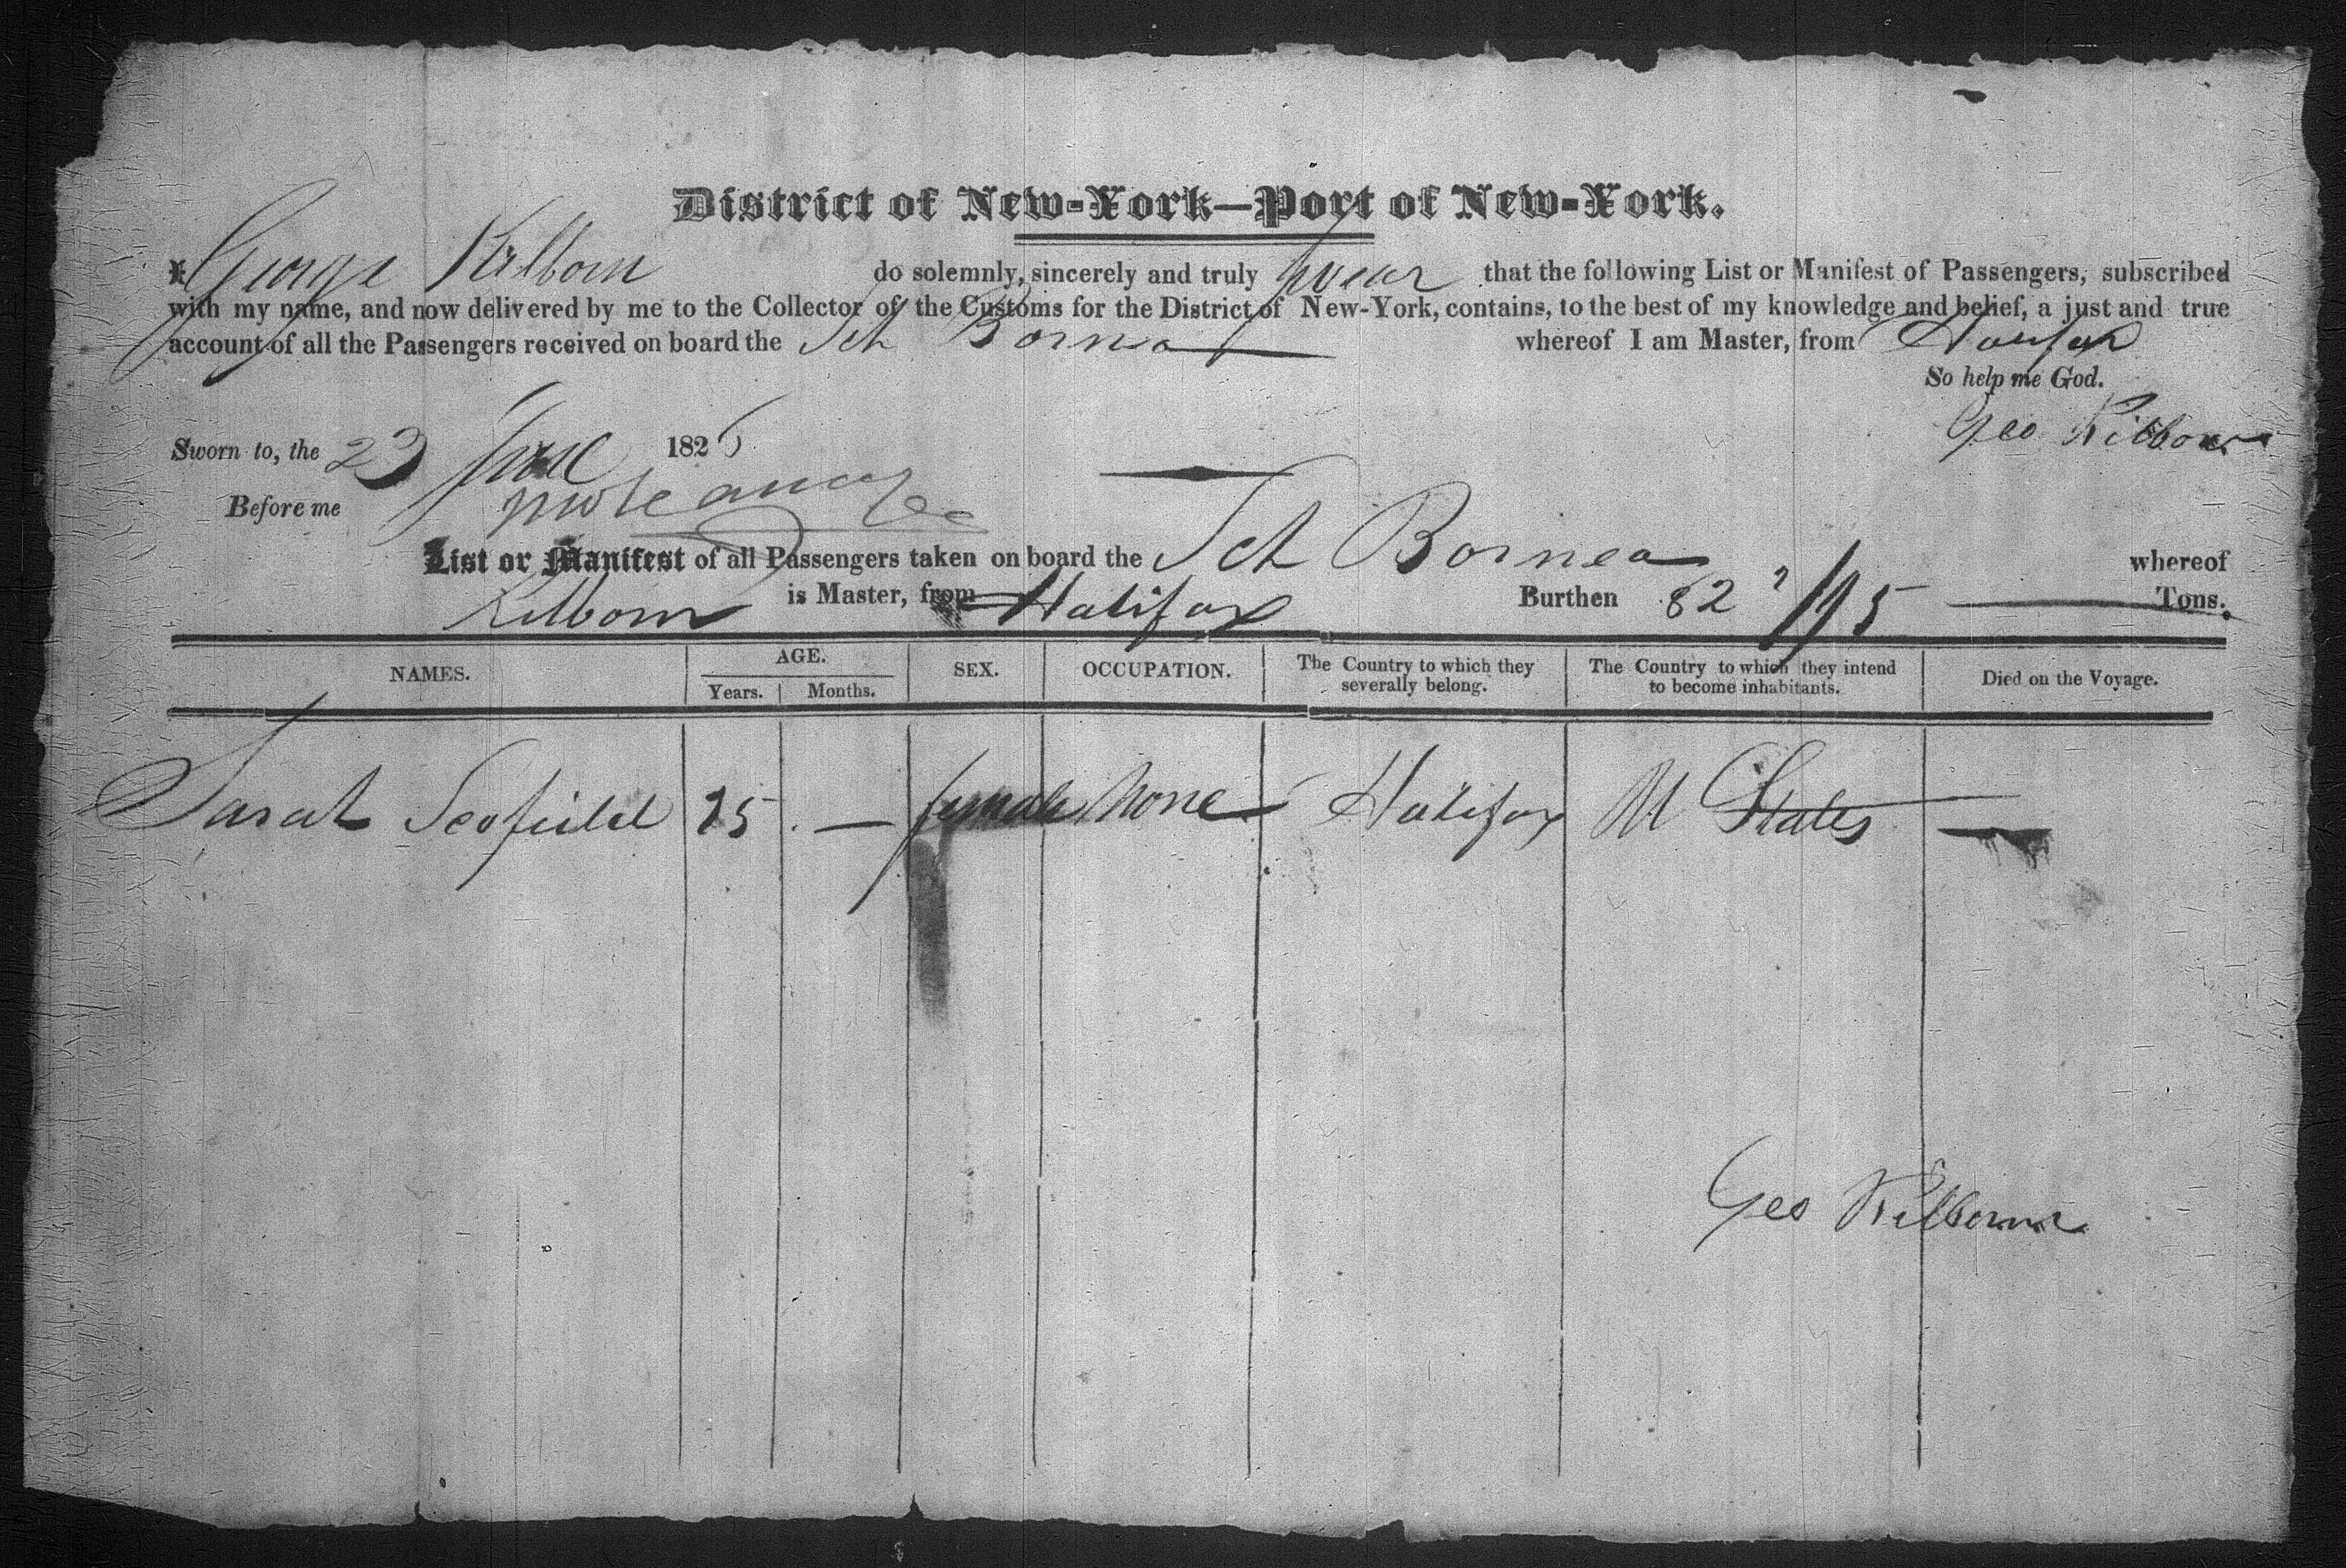 District of New-York—Port of New-York.
I George Kilborn do solemnly, sincerely and truly swear that the following List or Manifest of Passengers, subscribed
with my name, and now delivered by me to the Collector of the Customs for the District of New-York, contains, to the best of my knowledge and belief, a just and true
account of all the Passengers received on board the Sch Bornea whereof I am Master, from Halifax
So help me God.
Geo Kilborn
Sworn to, the 23 June 182
Before me
List or Manifest of all Passengers taken on board the Sch Bornea whereof
Kilborn is Master, from Halifax Burthen 82 /95 Tons.
NAMES. AGE. SEX. OCCUPATION. The Country to which they severally belong. The Country to which they intend to become inhabitants. Died on the Voyage.
Years. Months.
Sarah Scofield 25 — female None Halifax U States —
Geo Kilborn